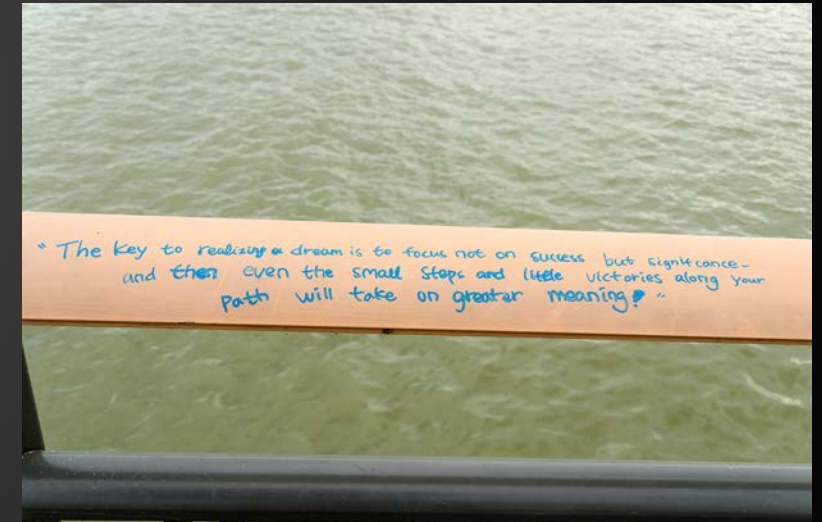 " The key to realizing a dream is to focus not on success but significance -
and then even the small steps and little victories along your
path will take on greater meaning! "